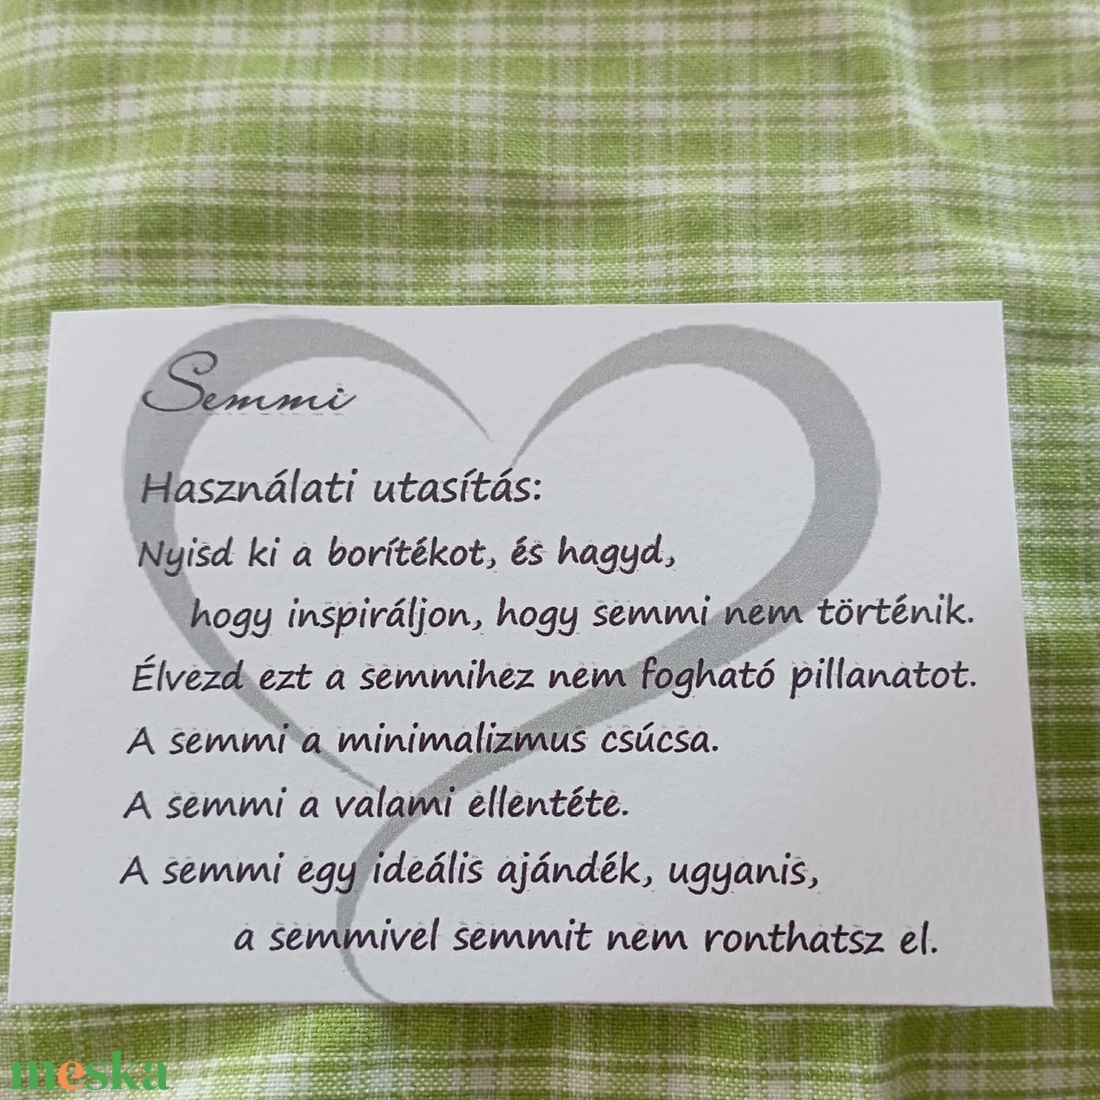 Semmi
Használati utasítás:
Nyisd ki a borítékot, és hagyd,
hogy inspiráljon, hogy semmi nem történik.
Élvezd ezt a semmihez nem fogható pillanatot.
A semmi a minimalizmus csúcsa.
A semmi a valami ellentéte.
A semmi egy ideális ajándék, ugyanis,
a semmivel semmit nem ronthatsz el.
meska